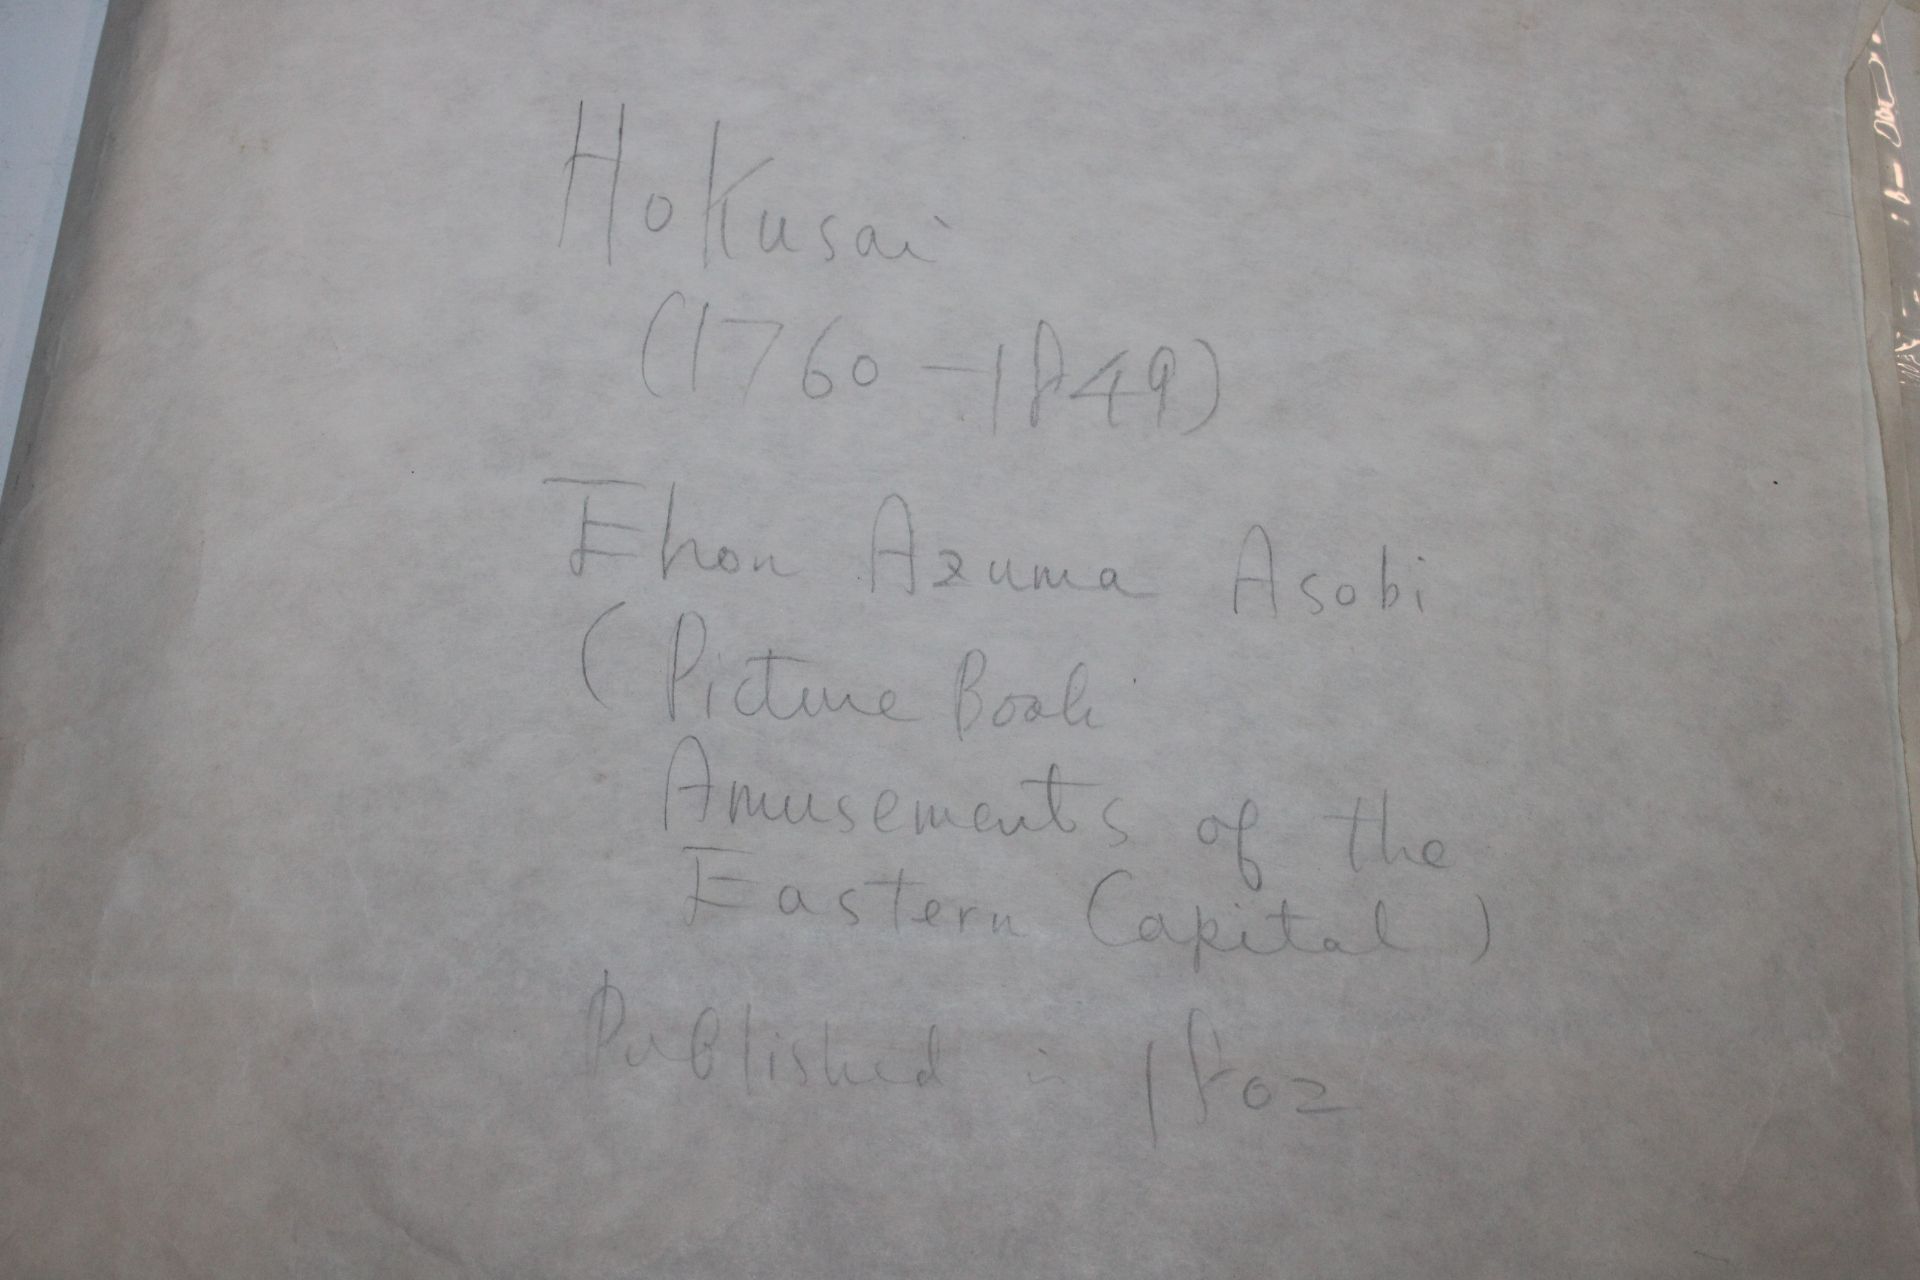 Hokusai
(1760-1849)
Ehon Azuma Asobi
(Picture Book
Amusements of the
Eastern Capital)
Published in 1802